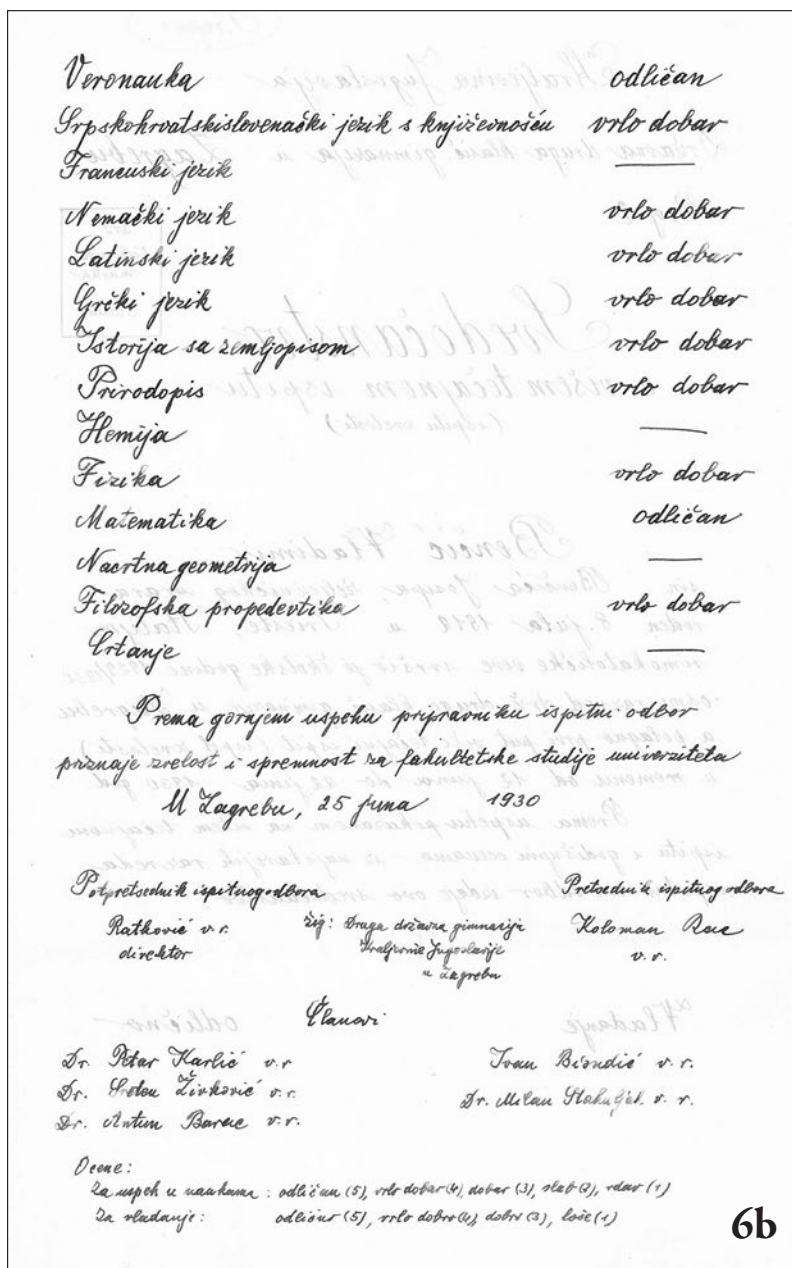 Veronauka odličan
Srpskohrvatskislovenački jezik s književnošću vrlo dobar
Francuski jezik —
Nemački jezik vrlo dobar
Latinski jezik vrlo dobar
Grčki jezik vrlo dobar
Istorija sa zemljopisom vrlo dobar
Prirodopis vrlo dobar
Hemija —
Fizika vrlo dobar
Matematika odličan
Nacrtna geometrija —
Filozofska propedevtika vrlo dobar
Crtanje —
Prema gornjem uspehu pripravniku ispitni odbor
priznaje zrelost i spremnost za fakultetske studije univerziteta
U Zagrebu, 25 juna 1930
Potpretsednik ispitnog odbora Pretsednik ispitnog odbora
Ratković v.r. žig: Draga državna gimnazija Koloman Rac
direktor Kraljevine Jugoslavije v.r.
u Zagrebu
Članovi
Dr. Petar Karlić v.r Ivan Biondić v.r.
Dr. Sreten Živković v.r. Dr. Milan Stahuljak v. r.
Dr. Antun Barac v.r.
Ocene:
Za uspeh u naukama: odličan (5), vrlo dobar (4), dobar (3), slab (2), rđav (1)
Za vladanje: odlično (5), vrlo dobro (4), dobro (3), loše (1)
6b